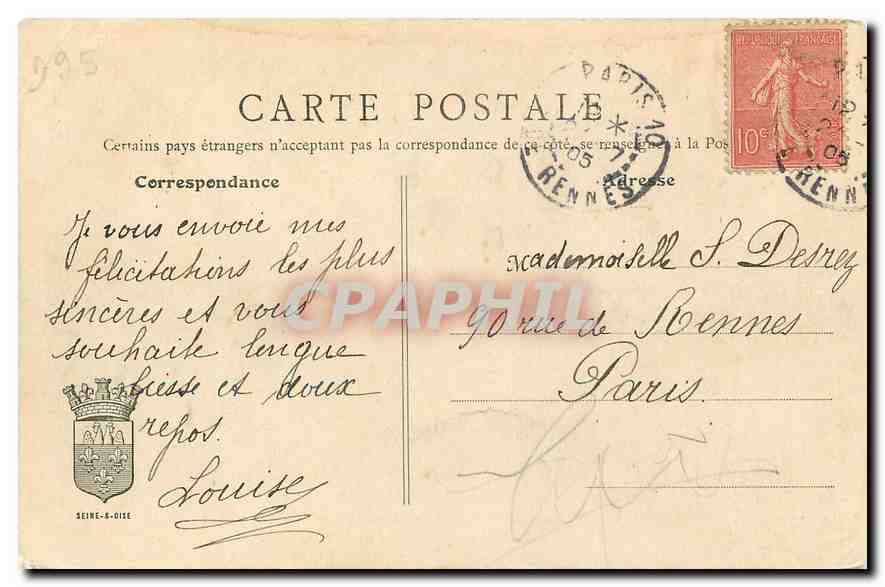 295
CARTE POSTALE
Certains pays étrangers n'acceptant pas la correspondance de ce côté, se renseigner à la Pos
Correspondance
Adresse
REPUBLIQUE FRANÇAISE
10c
PARIS 10
05
RENNES
Je vous envoie mes
félicitations les plus
sincères et vous
souhaite longue
liesse et doux
repos.
Louise
SEINE-&-OISE
Mademoiselle S. Desrez
90 rue de Rennes
Paris.
CPAPHIL